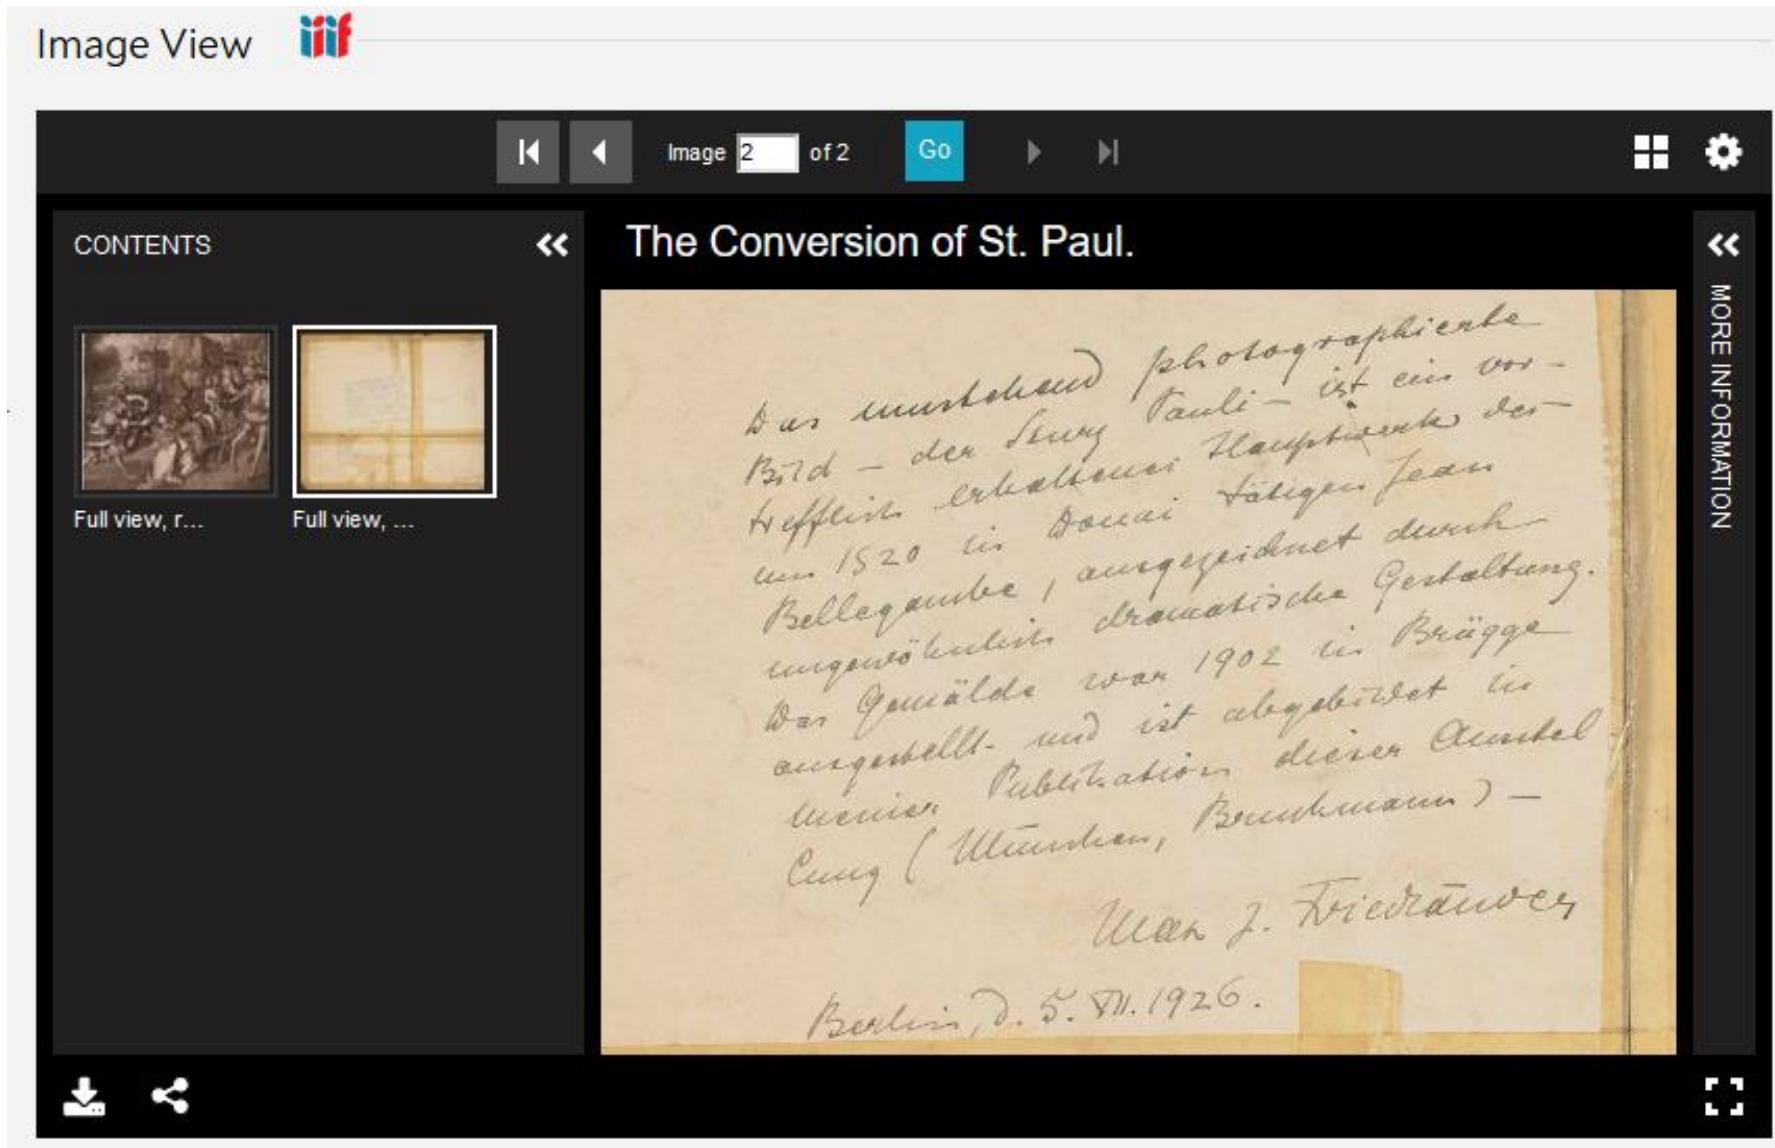 Image View iiif
Image 2 of 2 Go
CONTENTS
Full view, r...
Full view, ...
The Conversion of St. Paul.
Das umstehend photographierte
Bild – der Sturz Pauli – ist ein vor-
trefflich erhaltenes Hauptwerk des
um 1520 in Douai tätigen Jean
Bellegambe, ausgezeichnet durch
ungewöhnlich dramatische Gestaltung.
Das Gemälde war 1902 in Brügge
ausgestellt und ist abgebildet in
meiner Publikation dieser Ausstel
lung (München, Bruckmann) –
Max J. Friedländer
Berlin, d. 5. VII. 1926.
MORE INFORMATION